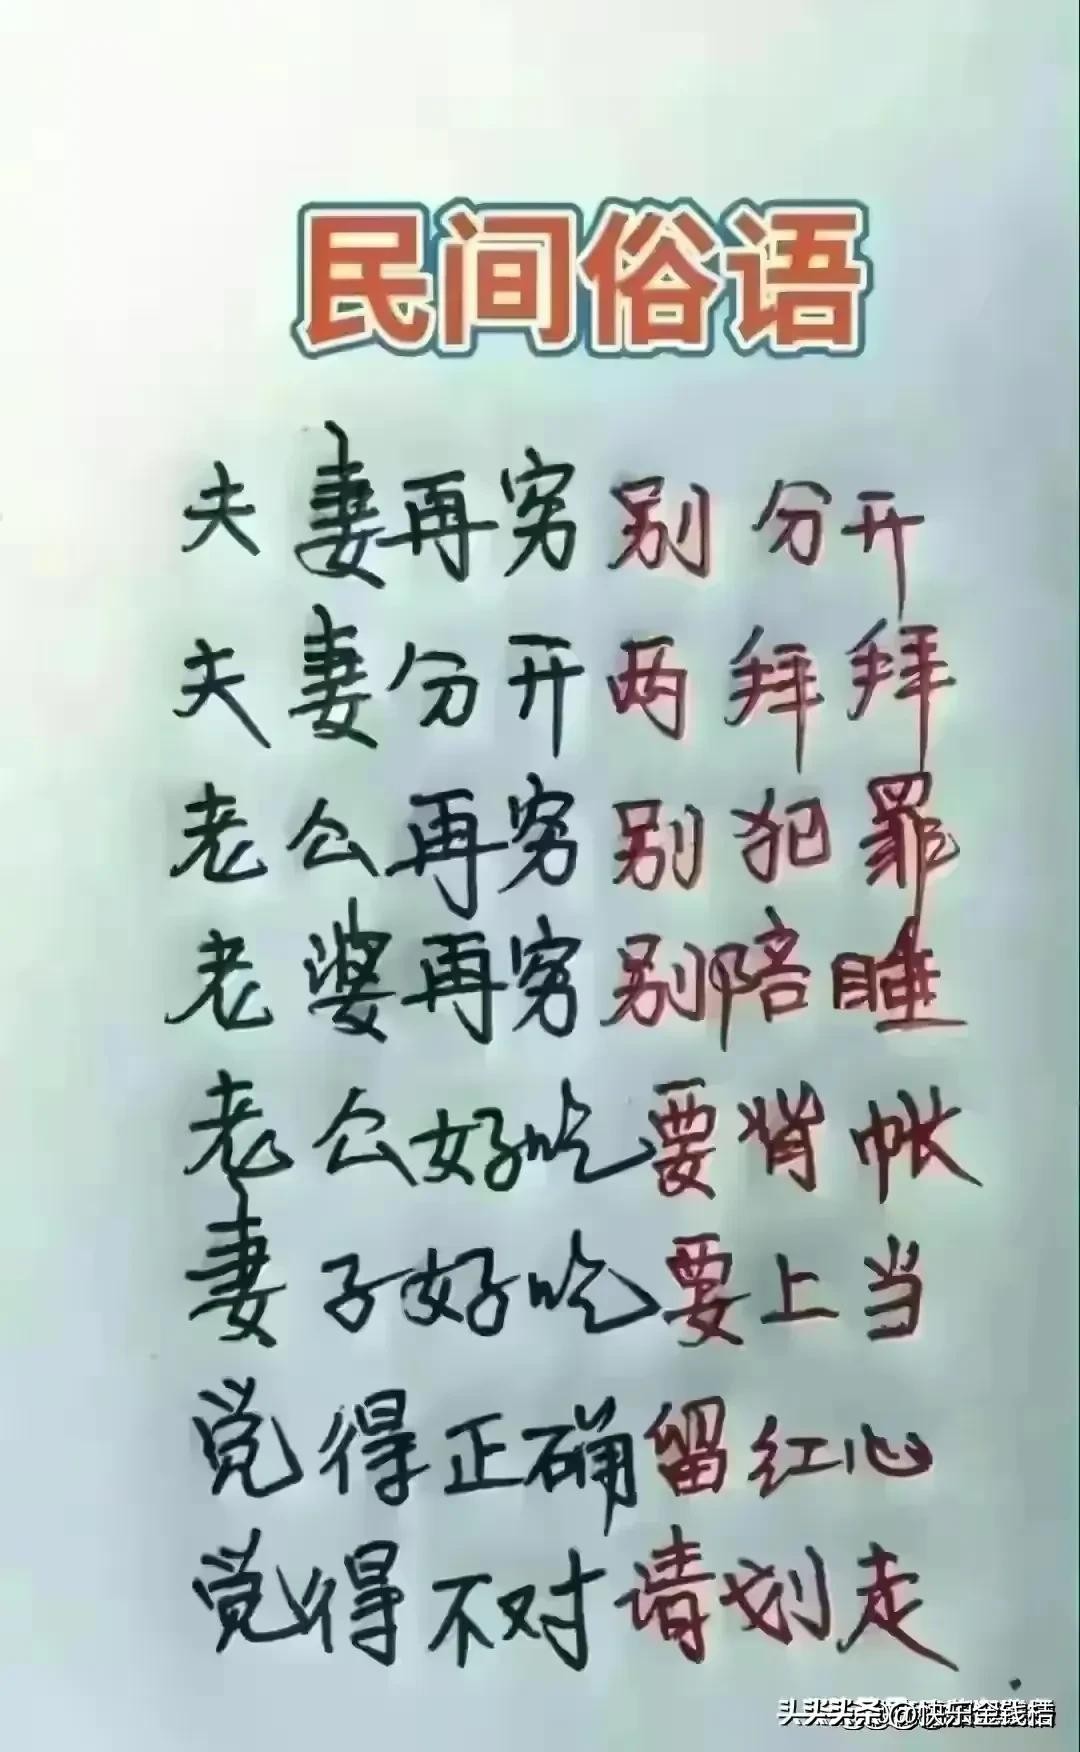 民间俗语
夫妻再穷别分开
夫妻分开两拜拜
老公再穷别犯罪
老婆再穷别陪睡
老公好吃要背帐
妻子好吃要上当
觉得正确留红心
觉得不对请划走
@快乐金钱桔